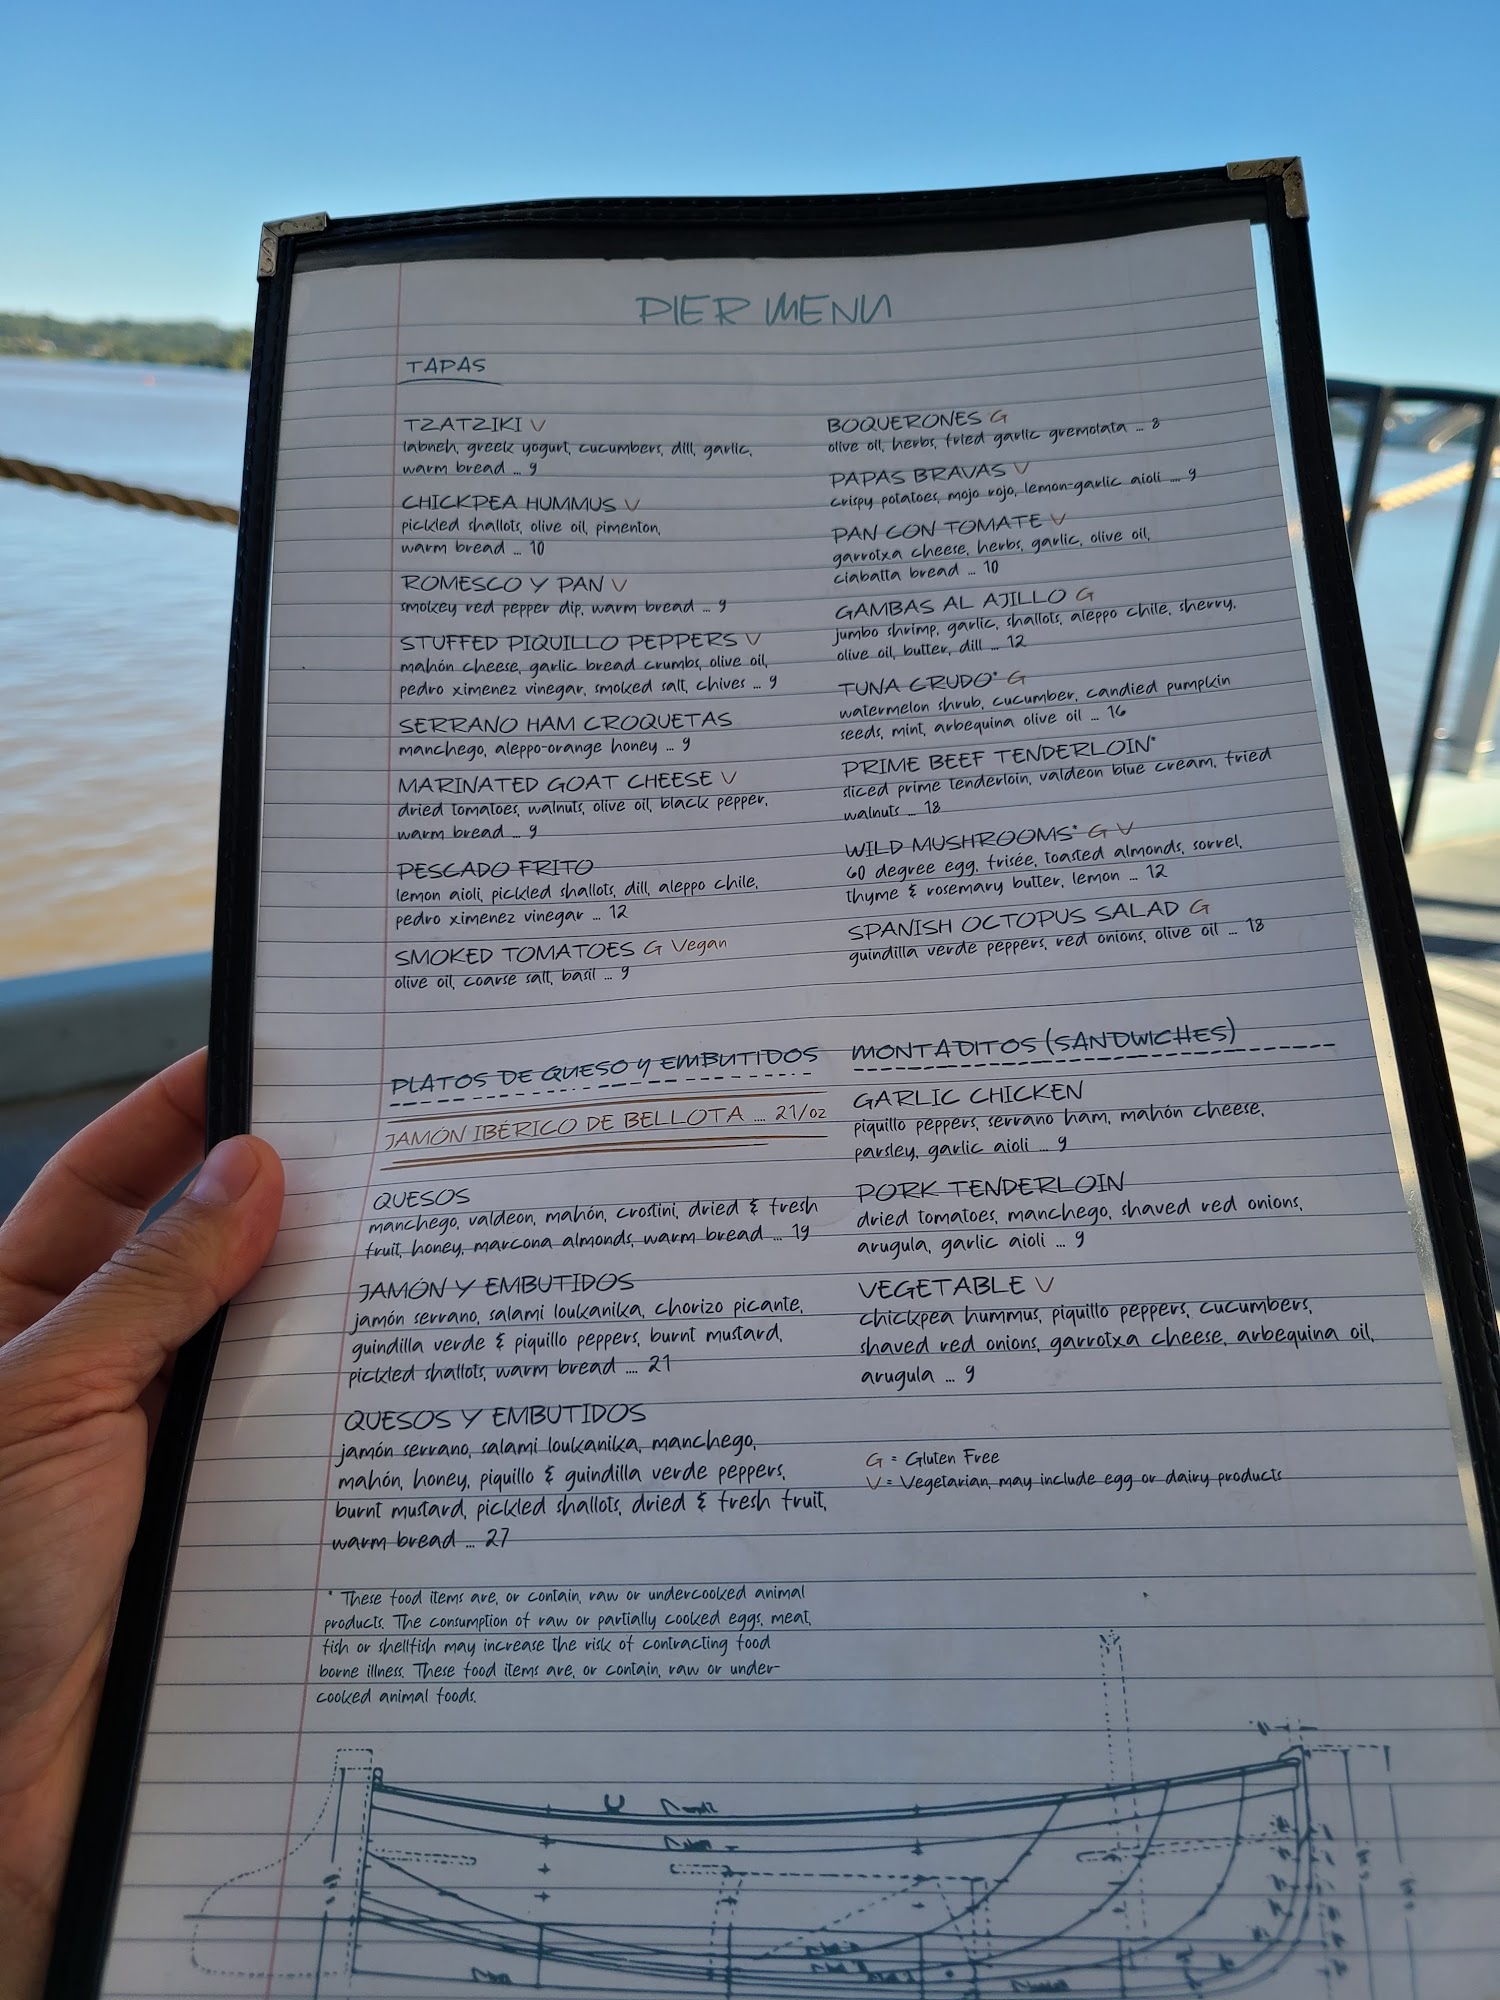 PIER MENU
TAPAS
TZATZIKI V
labneh, greek yogurt, cucumbers, dill, garlic,
warm bread ... 9
CHICKPEA HUMMUS V
pickled shallots, olive oil, pimenton,
warm bread ... 10
ROMESCO Y PAN V
smokey red pepper dip, warm bread ... 9
STUFFED PIQUILLO PEPPERS V
mahón cheese, garlic bread crumbs, olive oil,
pedro ximenez vinegar, smoked salt, chives ... 9
SERRANO HAM CROQUETAS
manchego, aleppo-orange honey ... 9
MARINATED GOAT CHEESE V
dried tomatoes, walnuts, olive oil, black pepper,
warm bread ... 9
PESCADO FRITO
lemon aioli, pickled shallots, dill, aleppo chile,
pedro ximenez vinegar ... 12
SMOKED TOMATOES G Vegan
olive oil, coarse salt, basil ... 9
BOQUERONES G
olive oil, herbs, fried garlic gremolata ... 8
PAPAS BRAVAS V
crispy potatoes, mojo rojo, lemon-garlic aioli .... 9
PAN CON TOMATE V
garrotxa cheese, herbs, garlic, olive oil,
ciabatta bread ... 10
GAMBAS AL AJILLO G
jumbo shrimp, garlic, shallots, aleppo chile, sherry,
olive oil, butter, dill ... 12
TUNA CRUDO* G
watermelon shrub, cucumber, candied pumpkin
seeds, mint, arbequina olive oil ... 16
PRIME BEEF TENDERLOIN*
sliced prime tenderloin, valdeon blue cream, fried
walnuts ... 18
WILD MUSHROOMS* G V
60 degree egg, frisée, toasted almonds, sorrel,
thyme & rosemary butter, lemon ... 12
SPANISH OCTOPUS SALAD G
guindilla verde peppers, red onions, olive oil ... 18
PLATOS DE QUESO Y EMBUTIDOS
JAMÓN IBÉRICO DE BELLOTA .... 21/oz
QUESOS
manchego, valdeon, mahón, crostini, dried & fresh
fruit, honey, marcona almonds, warm bread ... 19
JAMÓN Y EMBUTIDOS
jamón serrano, salami loukanika, chorizo picante,
guindilla verde & piquillo peppers, burnt mustard,
pickled shallots, warm bread .... 21
QUESOS Y EMBUTIDOS
jamón serrano, salami loukanika, manchego,
mahón, honey, piquillo & guindilla verde peppers,
burnt mustard, pickled shallots, dried & fresh fruit,
warm bread ... 27
MONTADITOS (SANDWICHES)
GARLIC CHICKEN
piquillo peppers, serrano ham, mahón cheese,
parsley, garlic aioli ... 9
PORK TENDERLOIN
dried tomatoes, manchego, shaved red onions,
arugula, garlic aioli ... 9
VEGETABLE V
chickpea hummus, piquillo peppers, cucumbers,
shaved red onions, garrotxa cheese, arbequina oil,
arugula ... 9
G = Gluten Free
V = Vegetarian, may include egg or dairy products
* These food items are, or contain, raw or undercooked animal
products. The consumption of raw or partially cooked eggs, meat,
fish or shellfish may increase the risk of contracting food
borne illness. These food items are, or contain, raw or under-
cooked animal foods.